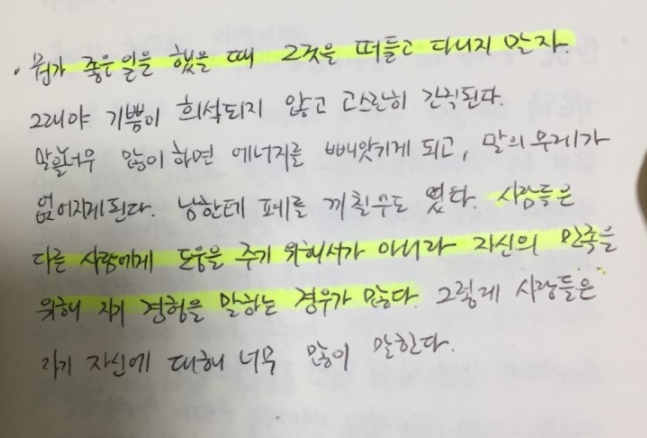 · 뭔가 좋은 일을 했을 때 그것을 떠들고 다니지 말자.
그래야 기쁨이 희석되지 않고 고스란히 간직된다.
말을 너무 많이 하면 에너지를 빼앗기게 되고, 말의 무게가
없어지게 된다. 남한테 폐를 끼칠 수도 있다. 사람들은
다른 사람에게 도움을 주기 위해서가 아니라 자신의 만족을
위해 자기 경험을 말하는 경우가 많다. 그렇게 사람들은
자기 자신에 대해 너무 많이 말한다.